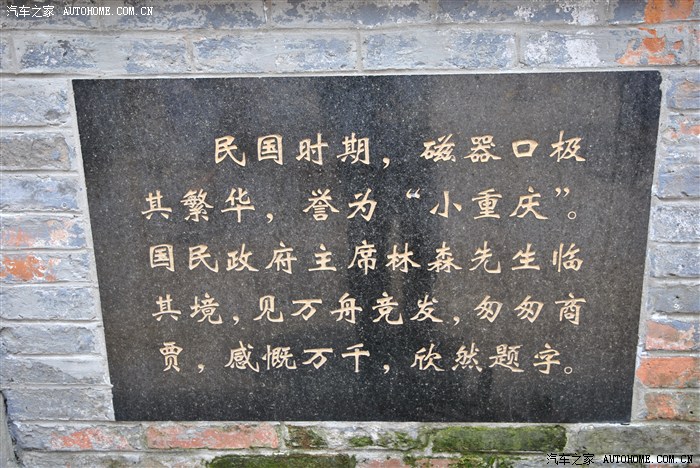 汽车之家 AUTOHOME.COM.CN
汽车之家 AUTOHOME.COM.CN
民国时期，磁器口极
其繁华，誉为“小重庆”。
国民政府主席林森先生临
其境，见万舟竞发，匆匆商
贾，感慨万千，欣然题字。
汽车之家 AUTOHOME.COM.CN